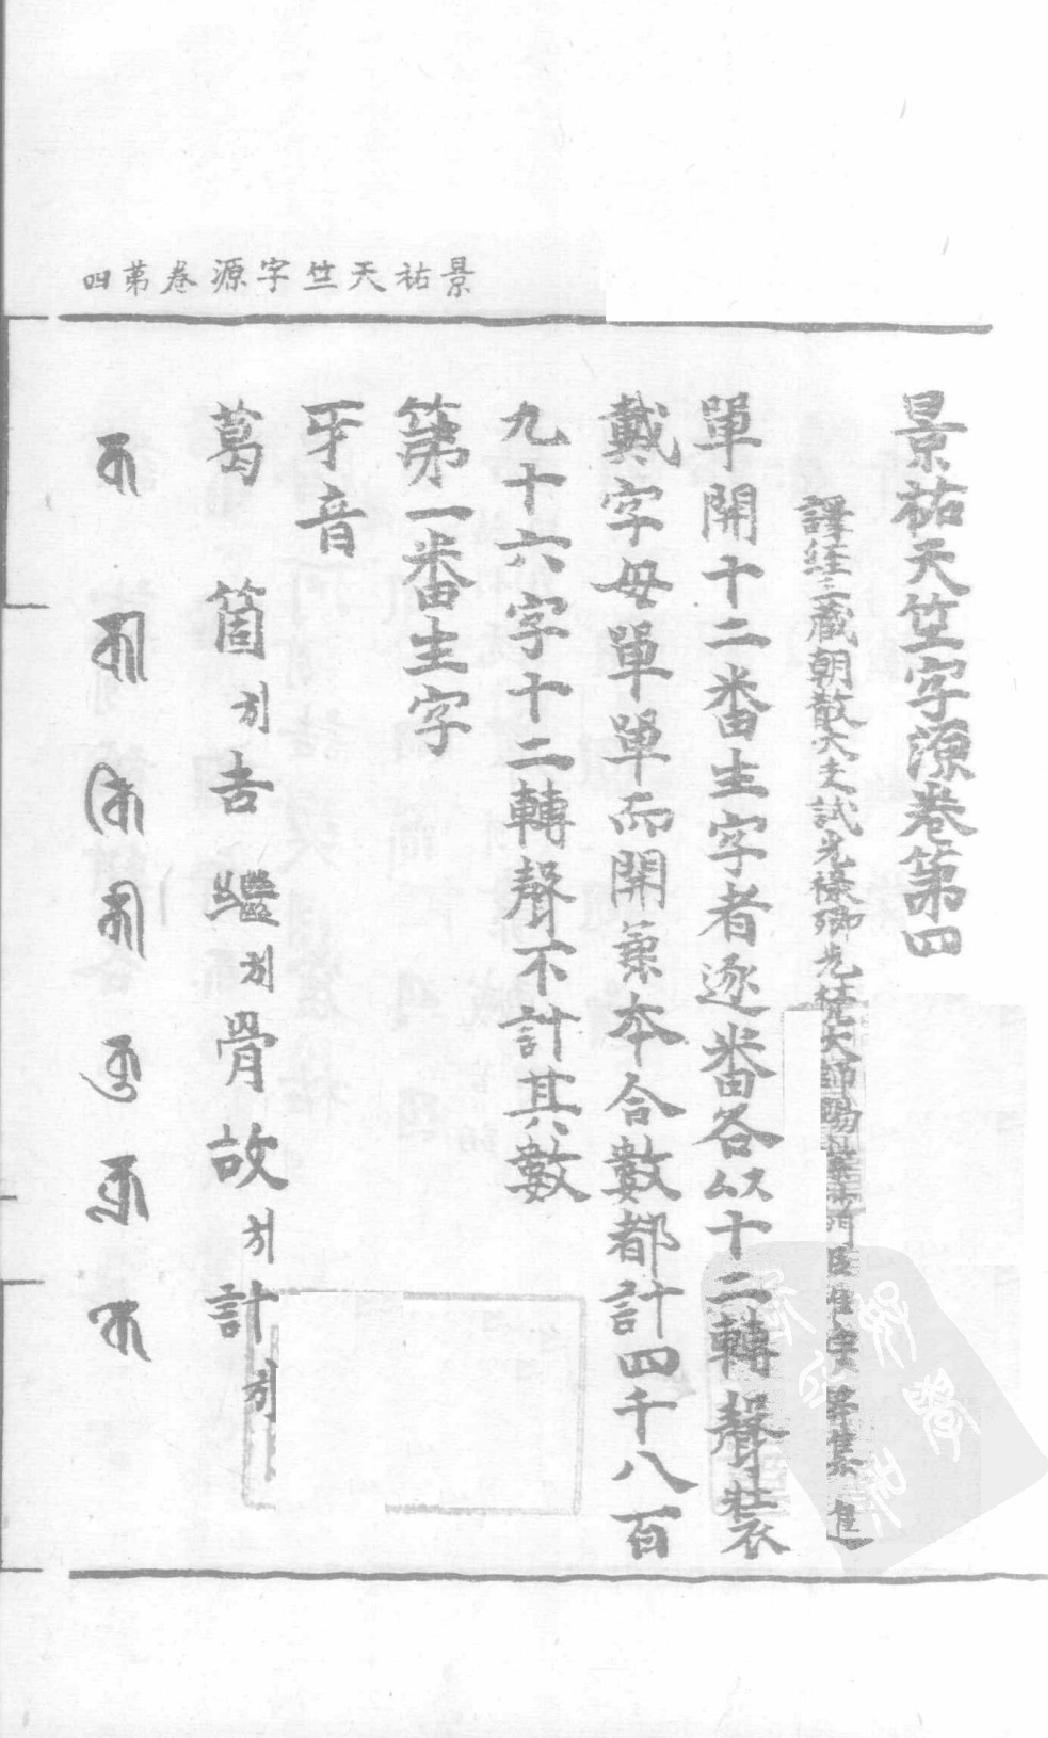 景祐天竺字源卷第四
景祐天竺字源卷第四
譯經三藏朝散大夫試光祿卿光梵大師賜紫沙門臣惟淨等集進
單開十二番生字者逐番各以十二轉聲裝
戴字母單單而開兼本合數都計四千八百
九十六字十二轉聲不計其數
第一番生字
牙音
葛 箇引 吉 繼引 骨 故引 計引